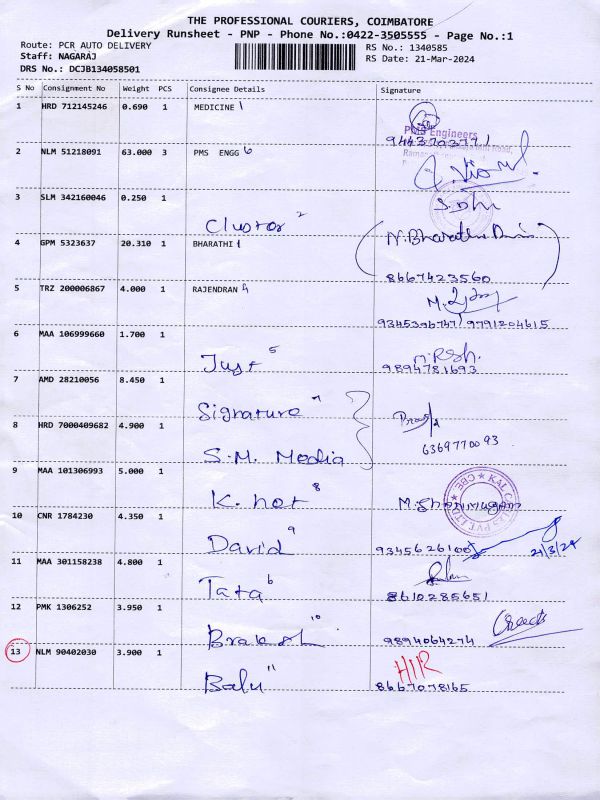 THE PROFESSIONAL COURIERS, COIMBATORE
Delivery Runsheet - PNP - Phone No.:0422-3505555 - Page No.:1
Route: PCR AUTO DELIVERY RS No.: 1340585
Staff: NAGARAJ RS Date: 21-Mar-2024
DRS No.: DCJB134058501
S No Consignment No Weight PCS Consignee Details Signature
1 HRD 712145246 0.690 1 MEDICINE 1
PMS Engineers
2 NLM 51218091 63.000 3 PMS ENGG 6
3 SLM 342160046 0.250 1
Cluster 2
4 GPM 5323637 20.310 1 BHARATHI 1
8667423560
5 TRZ 200006867 4.000 1 RAJENDRAN 4
9791204615
6 MAA 106999660 1.700 1
Just 5 9894781693
7 AMD 28210056 8.450 1
Signature 7
8 HRD 7000409682 4.900 1
S.M. Media 6369770093
9 MAA 101306993 5.000 1
K. hot 8
10 CNR 1784230 4.350 1
David 9 21/3/24
11 MAA 301158238 4.800 1
Tata 6 8610285651
12 PMK 1306252 3.950 1
10 9894064274
13 NLM 90402030 3.900 1
Balu 11 8667078165